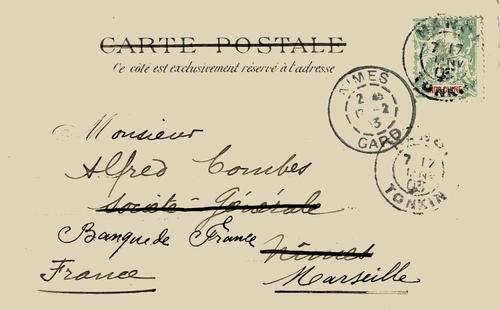 CARTE POSTALE
Ce côté est exclusivement réservé à l'adresse
HANOI
7 17
JANV
03
TONKIN
NIMES
17 -2
GARD
7 17
03
TONKIN
Monsieur
Alfred Combes
Société Générale
Banque de France
Nîmes
France
Marseille